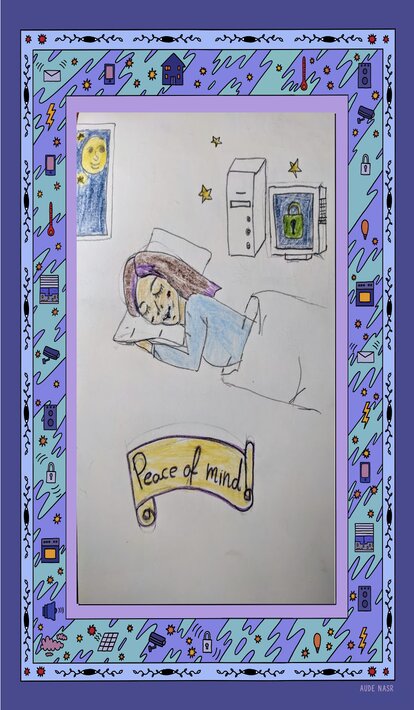 Peace of mind
AUDE NASR